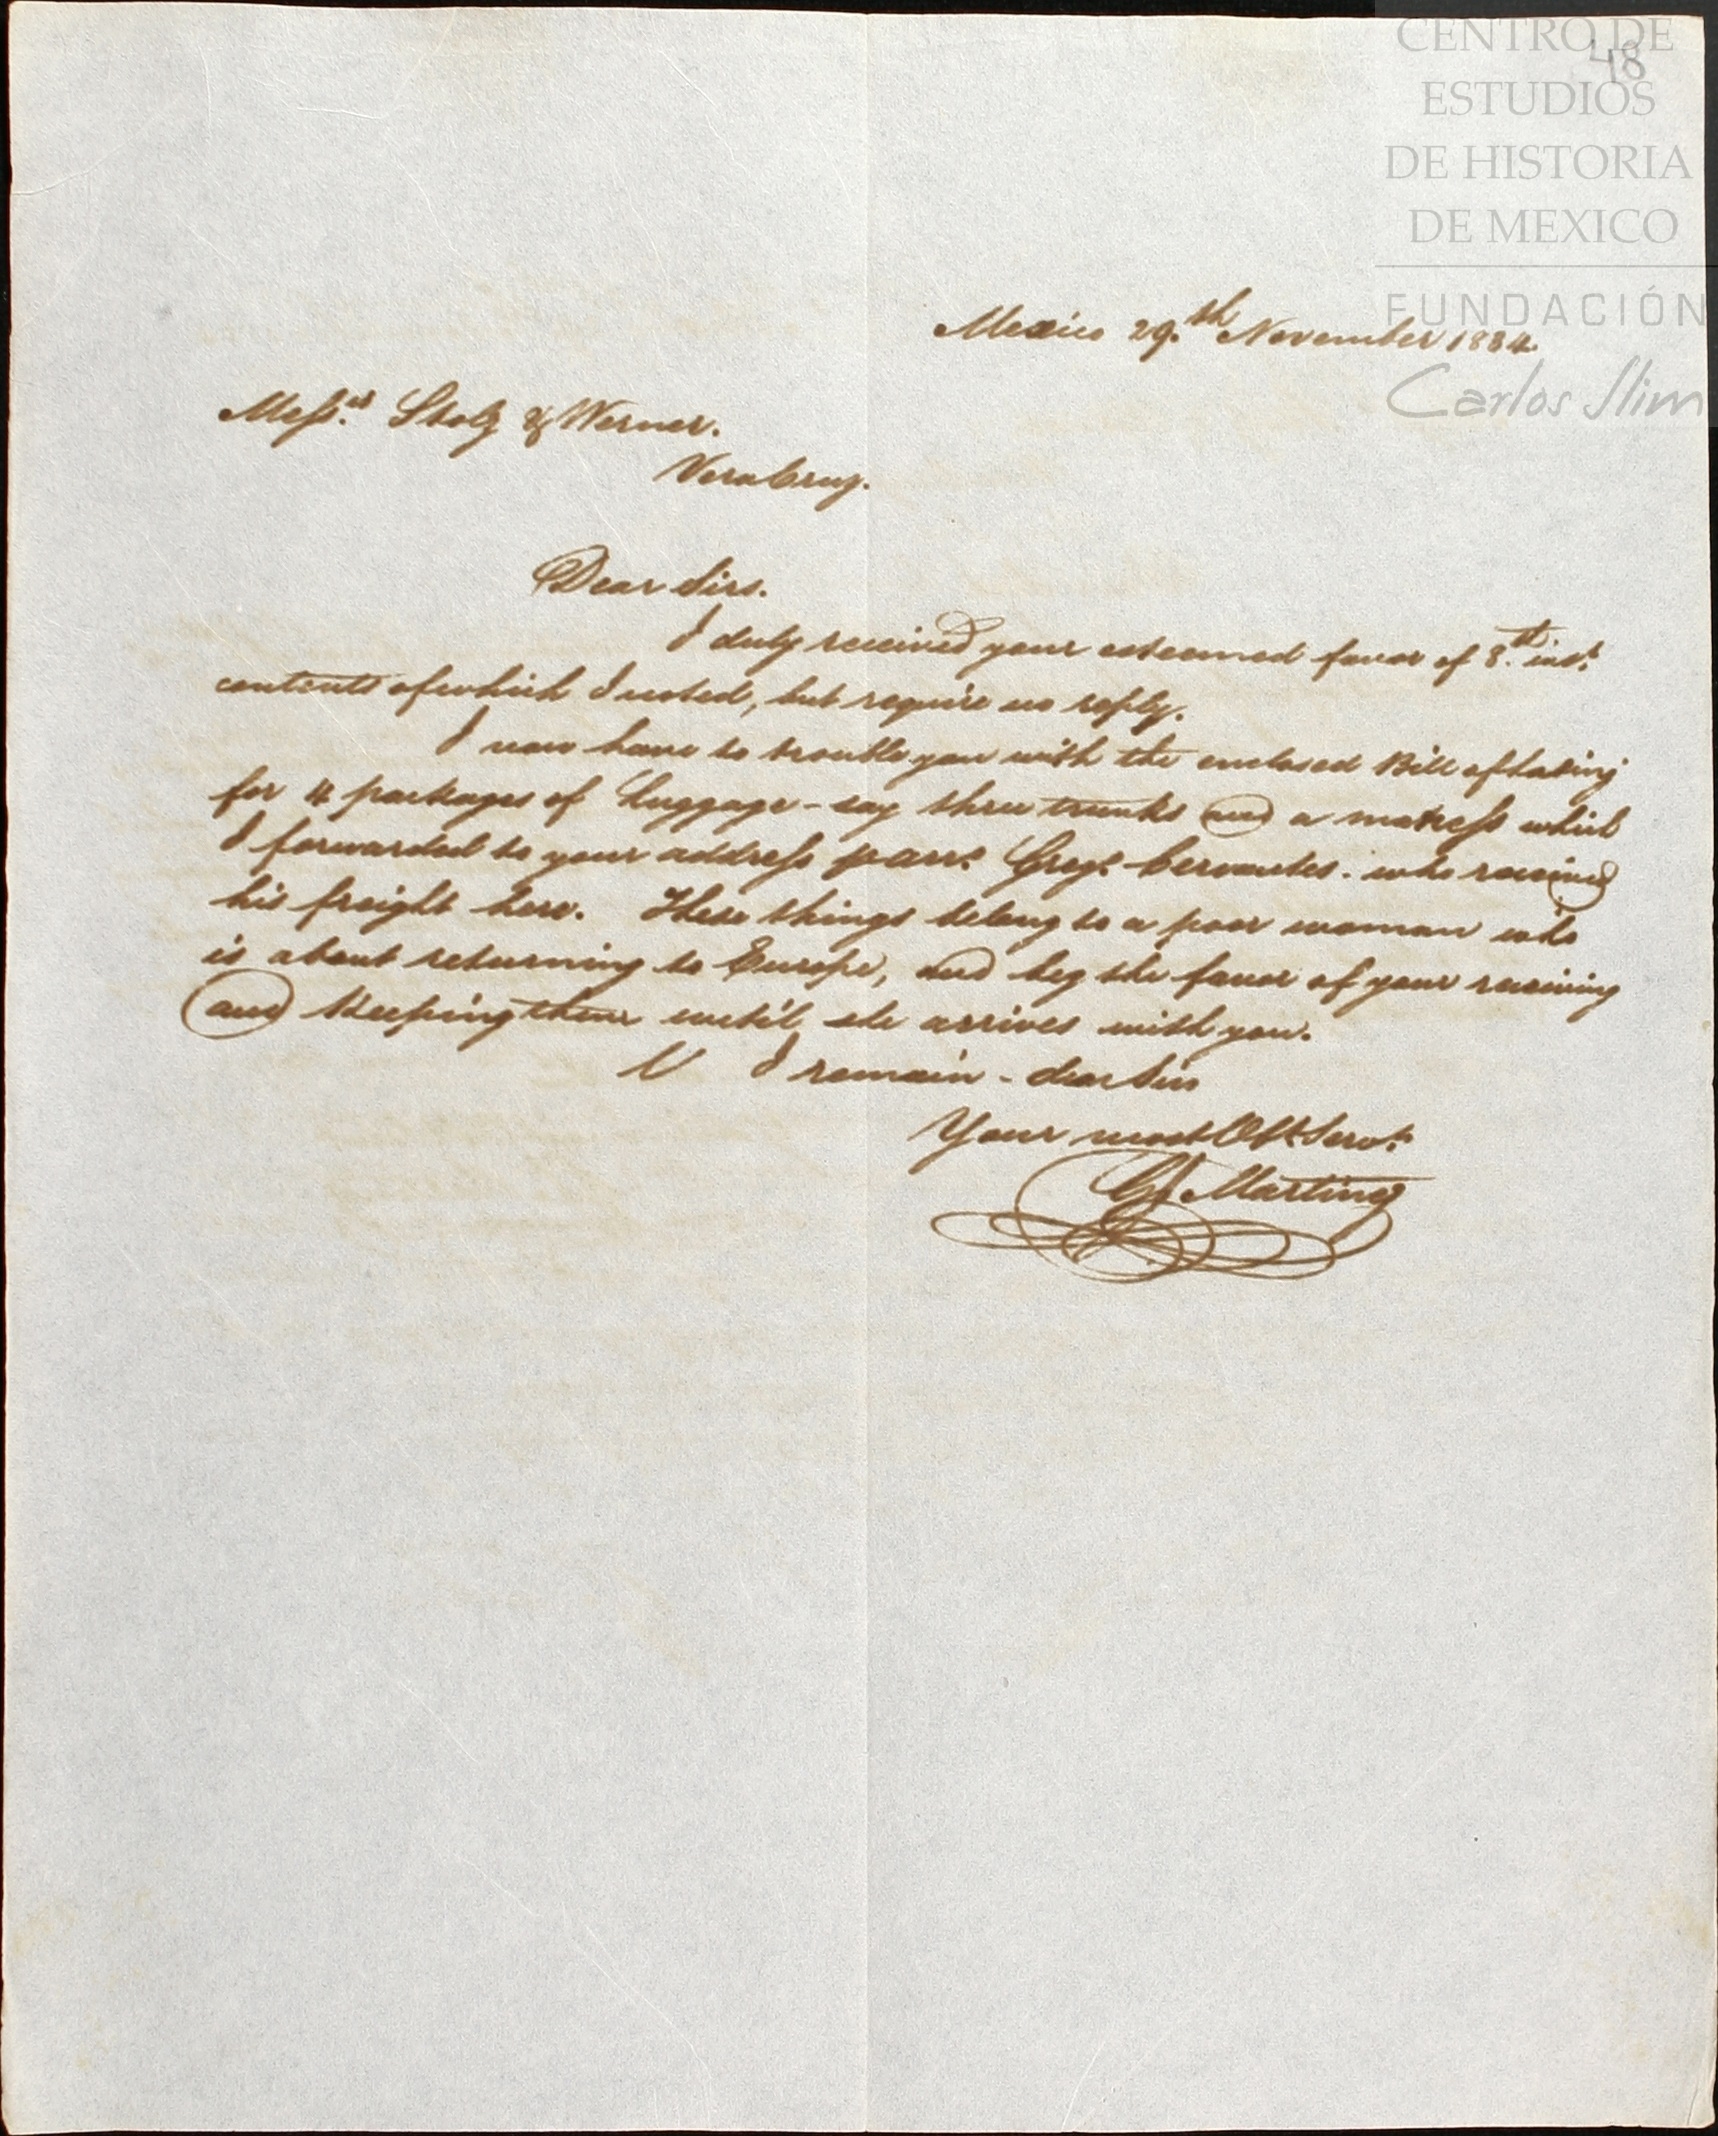 CENTRO DE
48
ESTUDIOS
DE HISTORIA
DE MEXICO
FUNDACIÓN
Carlos Slim
Mexico 29.th November 1834.
Messrs. Stolz & Werner.
Vera Cruz.
Dear Sirs.
I duly received your esteemed favor of 8.th inst.
contents of which I noted, but require no reply.
I now have to trouble you with the enclosed Bill of lading
for 4 packages of Luggage - say three trunks and a matress which
I forwarded to your address Gregº Cervantes. who received
his freight here. These things belong to a poor woman who
is about returning to Europe, and beg the favor of your receiving
and Keeping them until she arrives with you.
I remain - dear Sirs
Your most Obt Servt.
Martinez